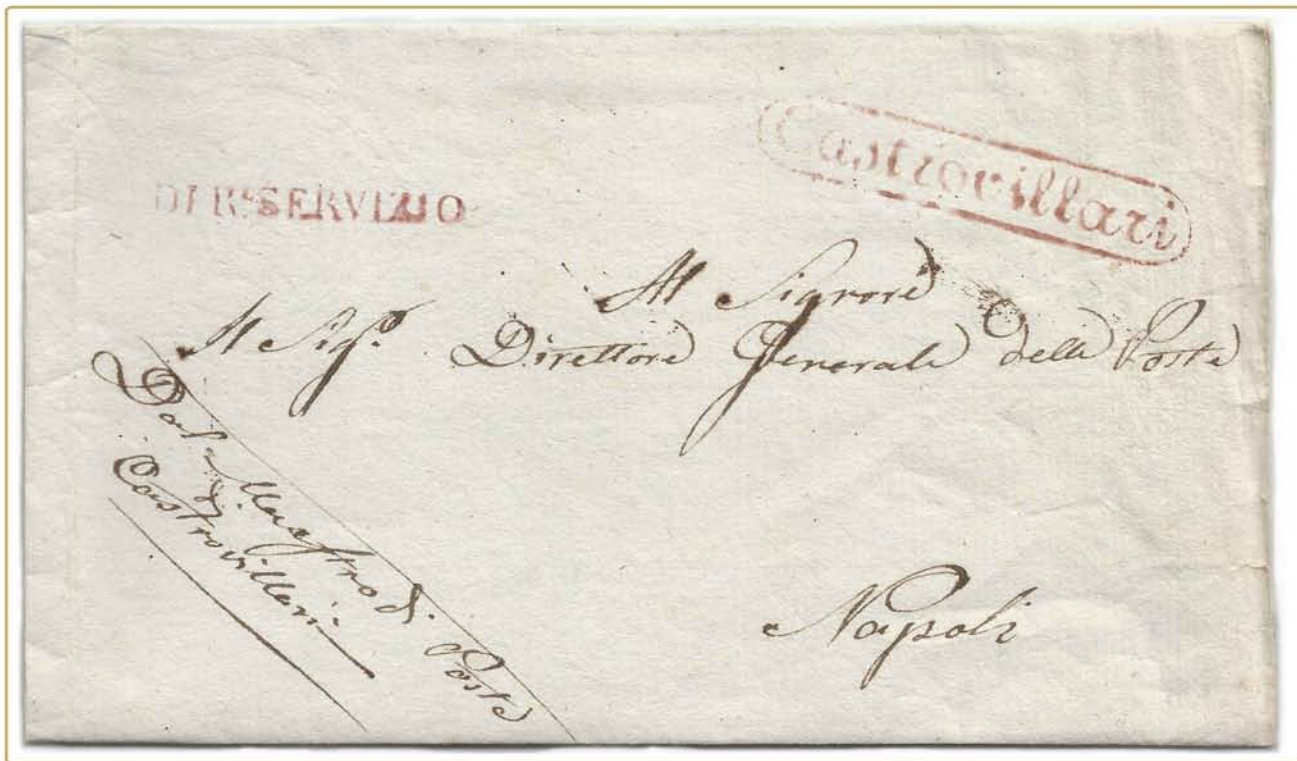 Castrovillari
DI R.º SERVIZIO
Al Signore
Al Sig.º Direttore Generale delle Poste
Dal Maestro di Posta
di
Castrovillari
Napoli